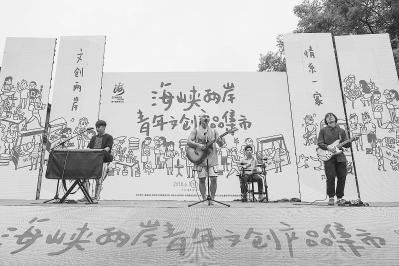 文创两岸
情系一家
海峡两岸
青年文创产品集市
海峡两岸青年文创产品集市